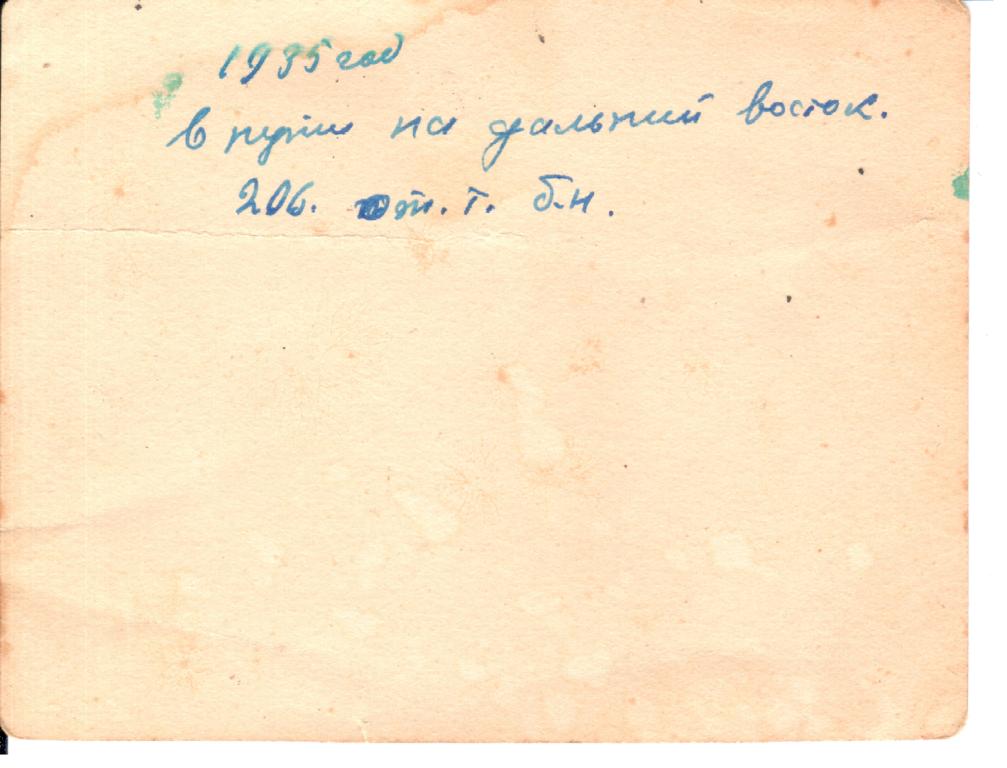 1935 год
в пути на дальний восток.
206. от. т. б-н.